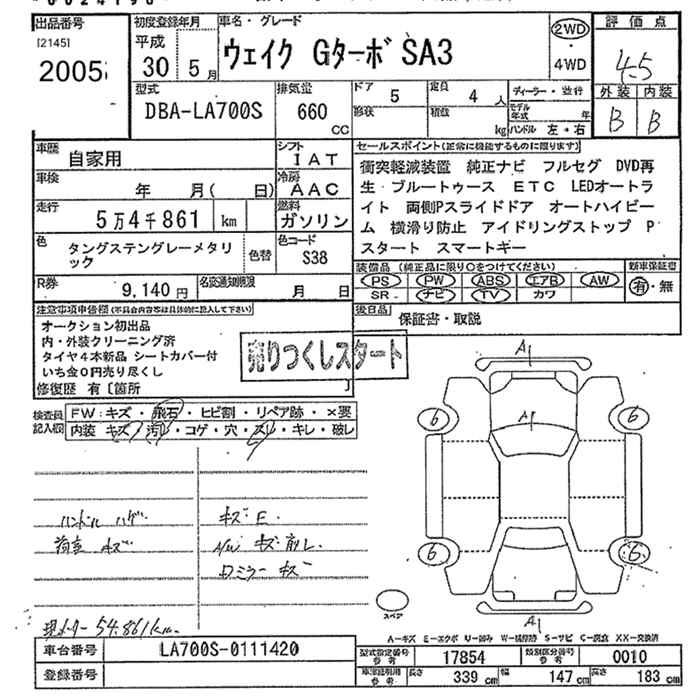 出品番号
[2145]
2005
初度登録年月
平成
30年 5月
車名・グレード
ウェイク GターボSA3
2WD
・
4WD
評価点
4.5
外装 内装
B B
型式
DBA-LA700S
排気量
660
CC
ドア
5
形状
定員
4人
積載
kg
ディーラー・並行
モデル年式 年
ハンドル 左・右
車歴
自家用
シフト
IAT
車検
年 月( 日)
冷房
AAC
走行
5万4千861 km
燃料
ガソリン
色
タングステングレーメタリ
ック
色替
色コード
S38
R券
9,140円
名変通知期限
月 日
セールスポイント(正常に機能するものに限ります)
衝突軽減装置 純正ナビ フルセグ DVD再
生 ブルートゥース ETC LEDオートラ
イト 両側Pスライドドア オートハイビー
ム 横滑り防止 アイドリングストップ P
スタート スマートキー
装備品(純正品に限り○をつけてください)
PS PW ABS エアB AW
SR ナビ TV カワ
新車保証書
有・無
後日品
保証書・取説
注意事項申告欄(不具合内容等は具体的に記入して下さい)
オークション初出品
内・外装クリーニング済
タイヤ4本新品 シートカバー付
いち金0円売り尽くし
修復歴 有〔箇所 〕
売りつくしスタート
検査員
記入欄
FW:キズ・飛石・ヒビ割・リペア跡・×要
内装 キズ・汚れ・コゲ・穴・スレ・キレ・破レ
ハンドル ハゲ
荷室 キズ
キズ E
AW キズ 削レ
ロミラー キズ
現メーター 54.861km
A1
A1
A1
6
6
6
6
スペア
A-キズ E-エクボ U-凹み W-補修跡 S-サビ C-腐食 XX-交換済
車台番号
LA700S-0111420
登録番号
型式指定番号
参考
17854
類別区分番号
参考
0010
車庫証明用
参考
長さ 339 cm
幅 147 cm
高さ 183 cm